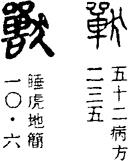 獸
五十二病方
二三五
獸
睡虎地簡
一〇・六